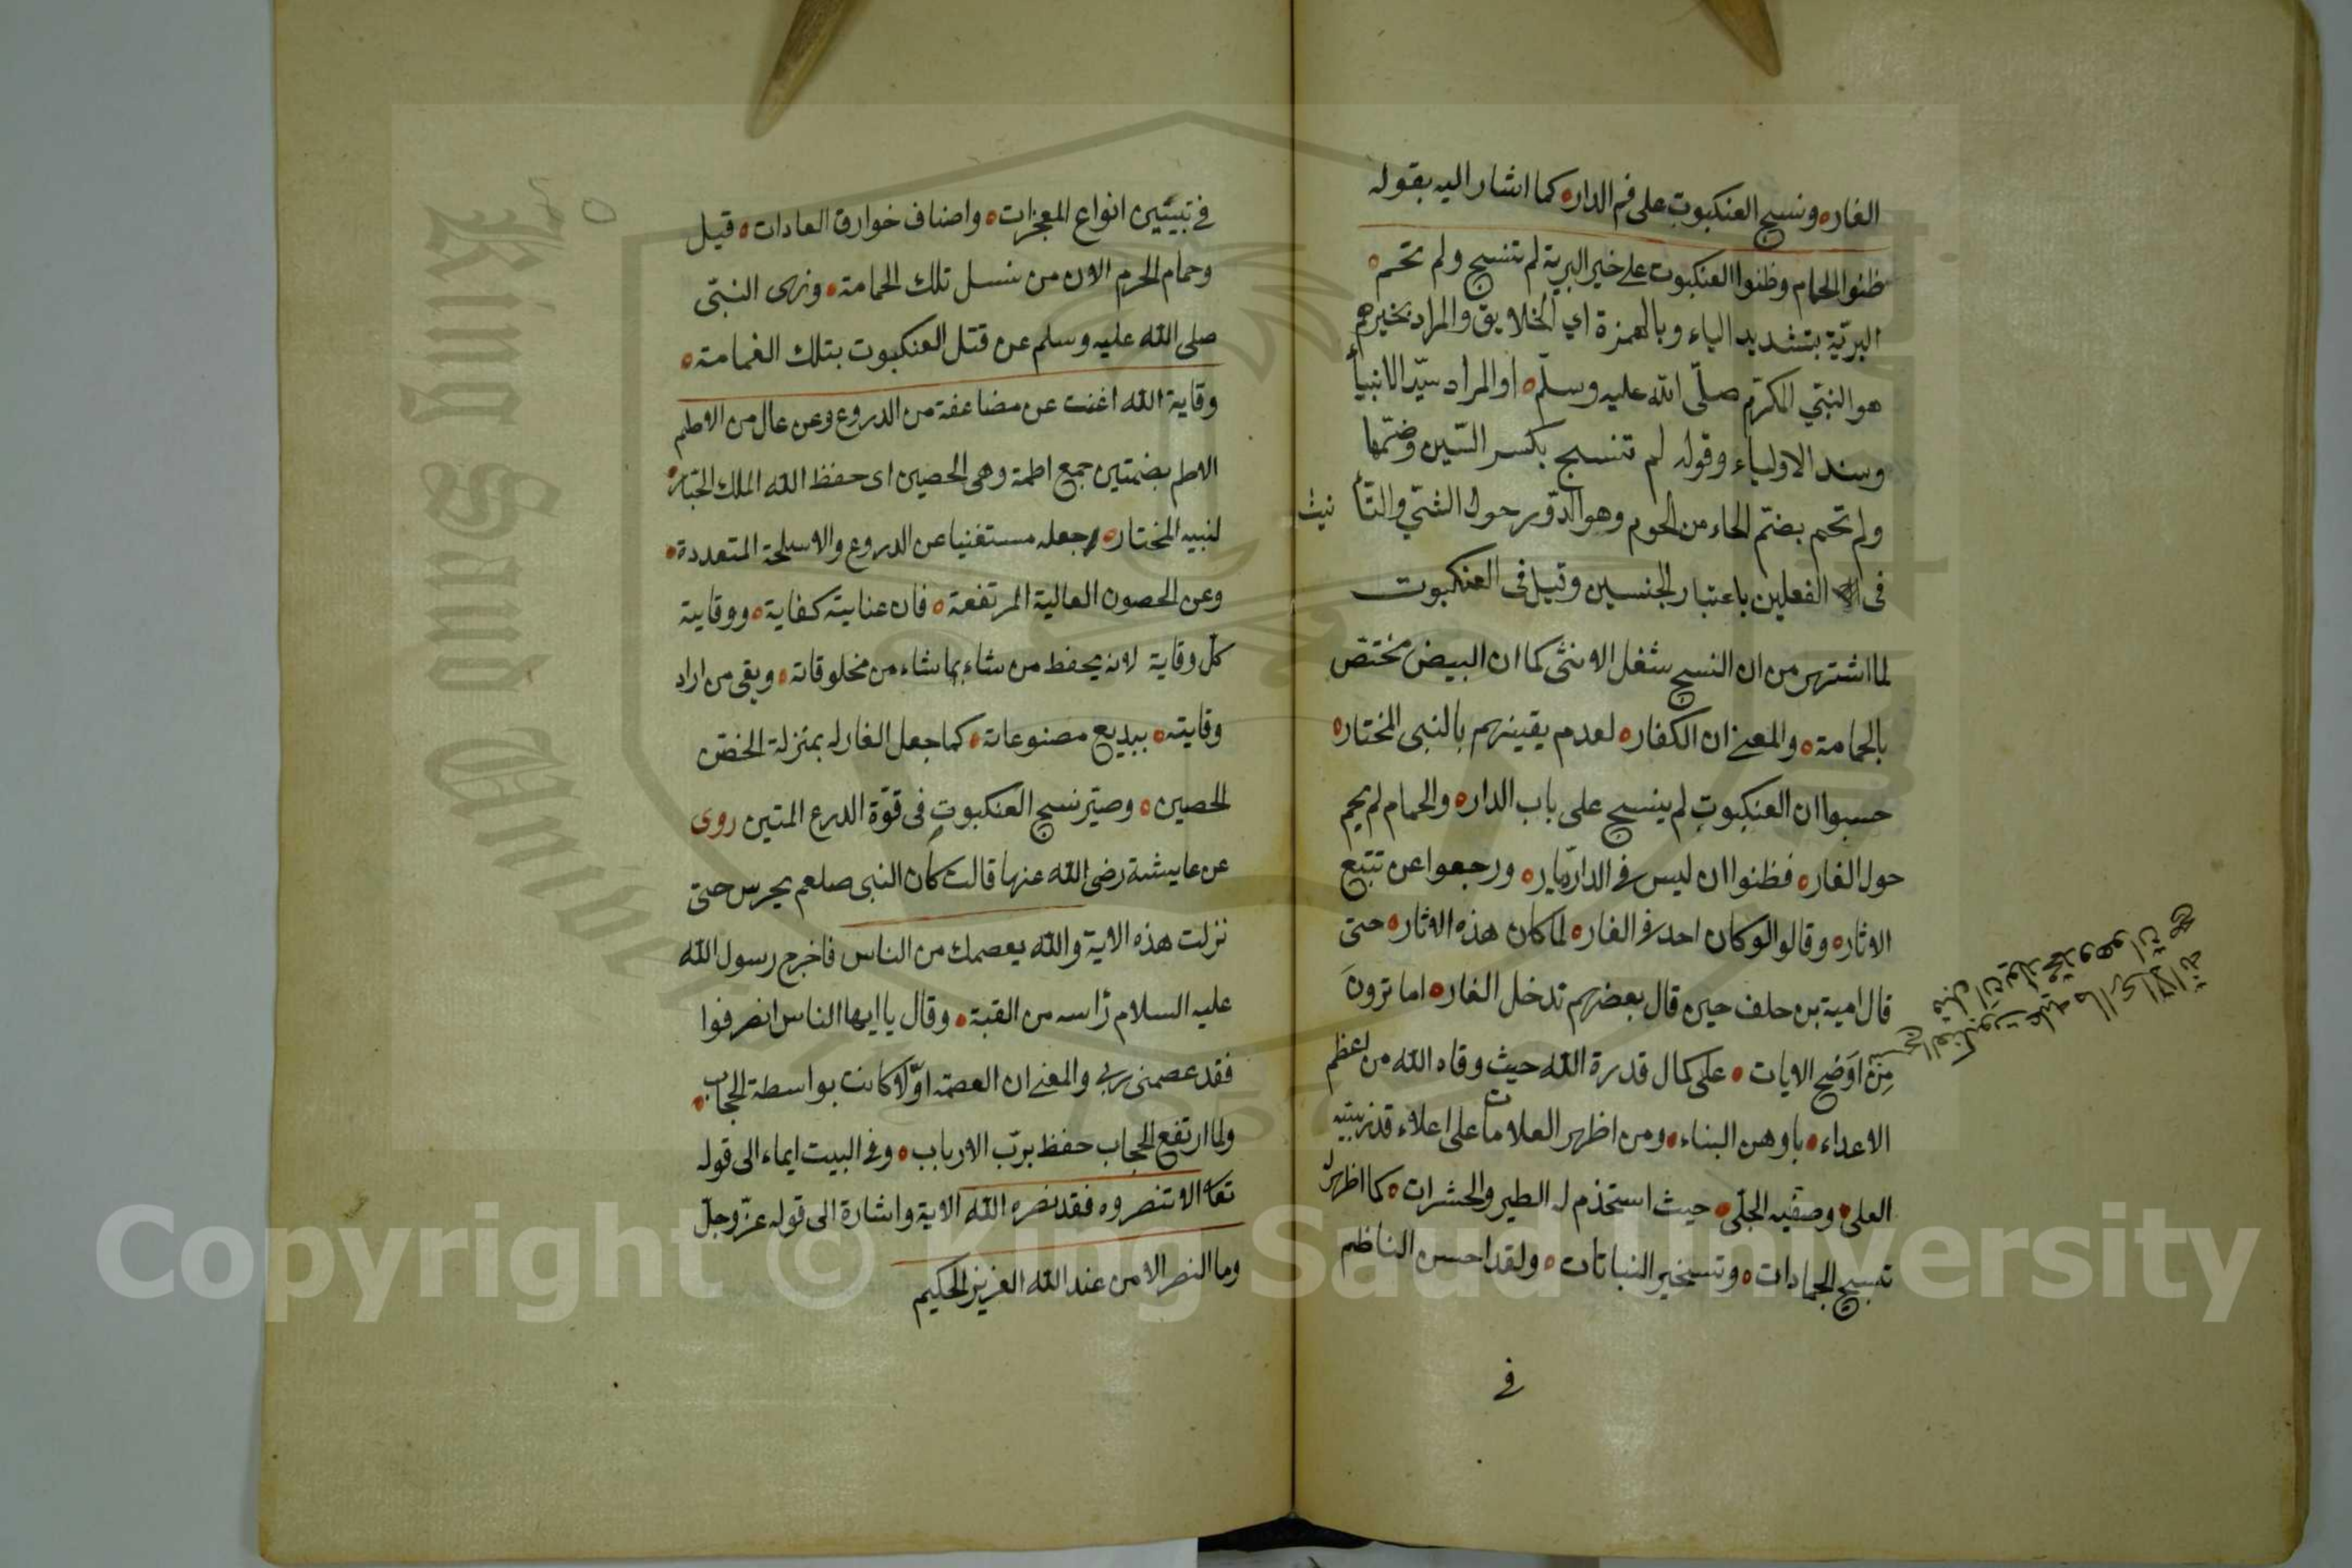 الغار ونسج العنكبوت على فم الدار كما اشار اليه بقوله
ظنوا الحمام وظنوا العنكبوت على خير البرية لم تنسج ولم تحم
البريّة بتشديد الياء وبالهمزة اي الخلايق والمراد بخيرهم
هو النبي المكرّم صلّى الله عليه وسلّم او المراد سيّد الانبيأ
وسند الاولياء وقوله لم تنسج بكسر السّين وضمّها
ولم تحم بضمّ الحاء من الحوم وهو الدّور حول الشئ والتأنيث
فى الفعلين باعتبار الجنسين وقيل فى العنكبوت
لما اشتهر من ان النسج شغل الانثى كما ان البيض مختصّ
بالحمامة والمعنى ان الكفار لعدم يقينهم بالنبى المختار
حسبوا ان العنكبوت لم ينسج على باب الدار والحمام لم يحم
حول الغار فظنوا ان ليس فى الدار ديّار ورجعوا عن تتبع
الاثار وقالوا لو كان احد فى الغار لما كان هذه الاثار حتى
قال امية بن خلف حين قال بعضهم تدخل الغار اما ترون
من اوضح الايات على كمال قدرة الله حيث وقاه الله من اعظم
الاعداء باوهن البناء ومن اظهر العلامات على اعلاء قدر نبيه
العلى وصفيه الجلّى حيث استخدم له الطير والحشرات كما اظهر له
تسبيح الجمادات وتسخير النباتات ولقد احسن الناظم
فى
نسج العنكبوت عليه ما ارى الا انه
قبل ان يولد محمد وهو ان
فى تبيين انواع المعجزات واصناف خوارق العادات قيل
وحمام الحرم الان من نسل تلك الحمامة ونهى النبىّ
صلى الله عليه وسلم عن قتل العنكبوت بتلك الغمامة
وقاية الله اغنت عن مضاعفة من الدروع وعن عال من الاطم
الاطم بضمتين جمع اطمة وهى الحصين اى حفظ الله الملك الجبّار
لنبيه المختار وجعله مستغنيا عن الدروع والاسلحة المتعددة
وعن الحصون العالية المرتفعة فان عنايته كفاية ووقايته
كلّ وقاية لانه يحفظ من شاء بما شاء من مخلوقاته ويقى من اراد
وقايته ببديع مصنوعاته كما جعل الغار له بمنزلة الحصن
الحصين وصيّر نسج العنكبوت فى قوّة الدرع المتين روى
عن عايشة رضى الله عنها قالت كان النبى صلعم يحرس حتى
نزلت هذه الاية والله يعصمك من الناس فاخرج رسول الله
عليه السلام رأسه من القبة وقال يا ايها الناس انصرفوا
فقد عصمنى ربى والمعنى ان العصمة اوّلا كانت بواسطة الحجاب
ولما ارتفع الحجاب حفظ بربّ الارباب وفى البيت ايماء الى قوله
تعالى الا تنصروه فقد نصره الله الاية واشارة الى قوله عزّ وجلّ
وما النصر الا من عند الله العزيز الحكيم
King Saud University
Copyright © King Saud University